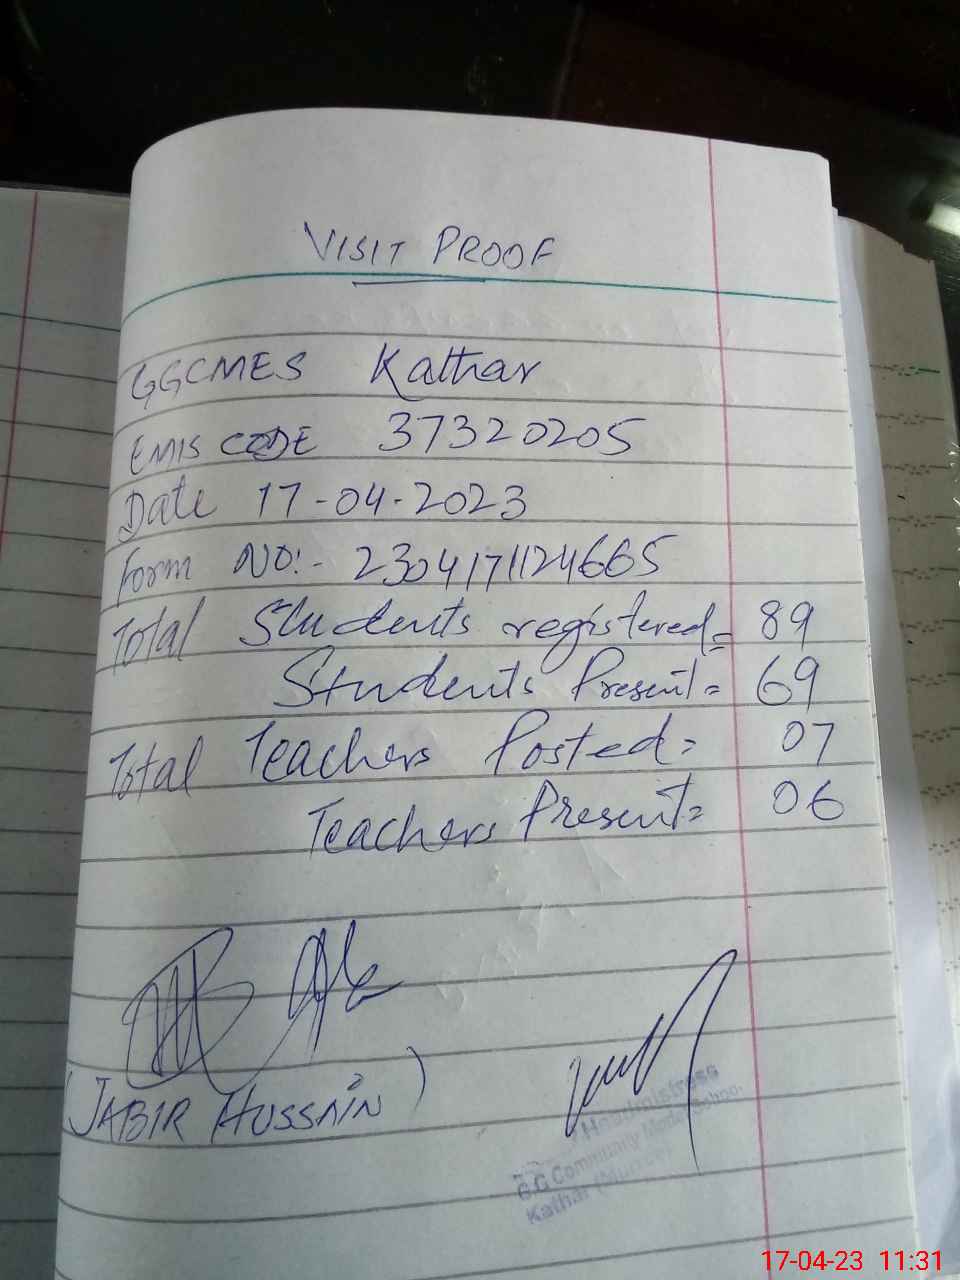 VISIT PROOF
GGCMES Kathar
EMIS CODE 37320205
Date 17-04-2023
Form NO:- 2304171124665
Total Students registered= 89
Students Present= 69
Total Teachers Posted= 07
Teachers Present= 06
(JABIR HUSSAIN)
Headmistress
G.G Community Model School
Kathar
17-04-23 11:31